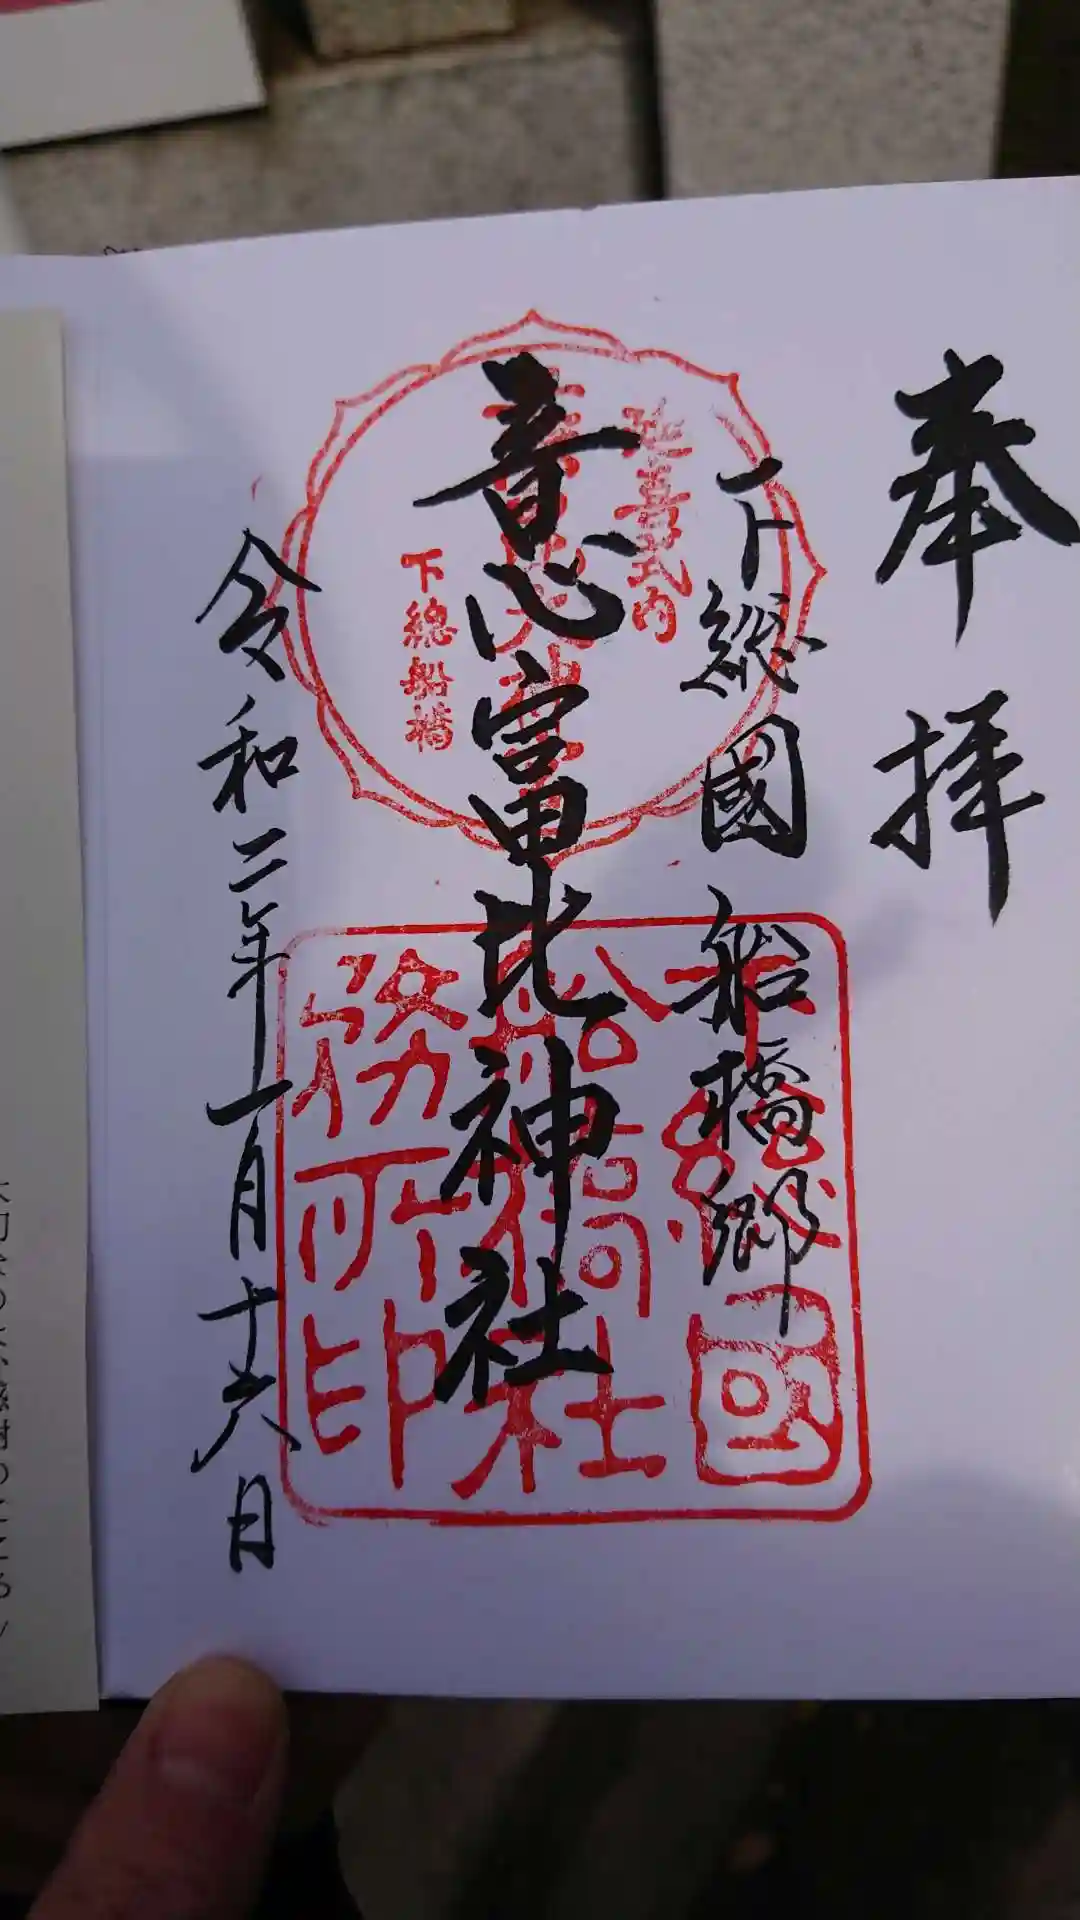 奉拝
下総國船橋郷
意富比神社
令和二年一月十六日
延喜式内
下總船橋
下総國
船橋大神宮社
務所印